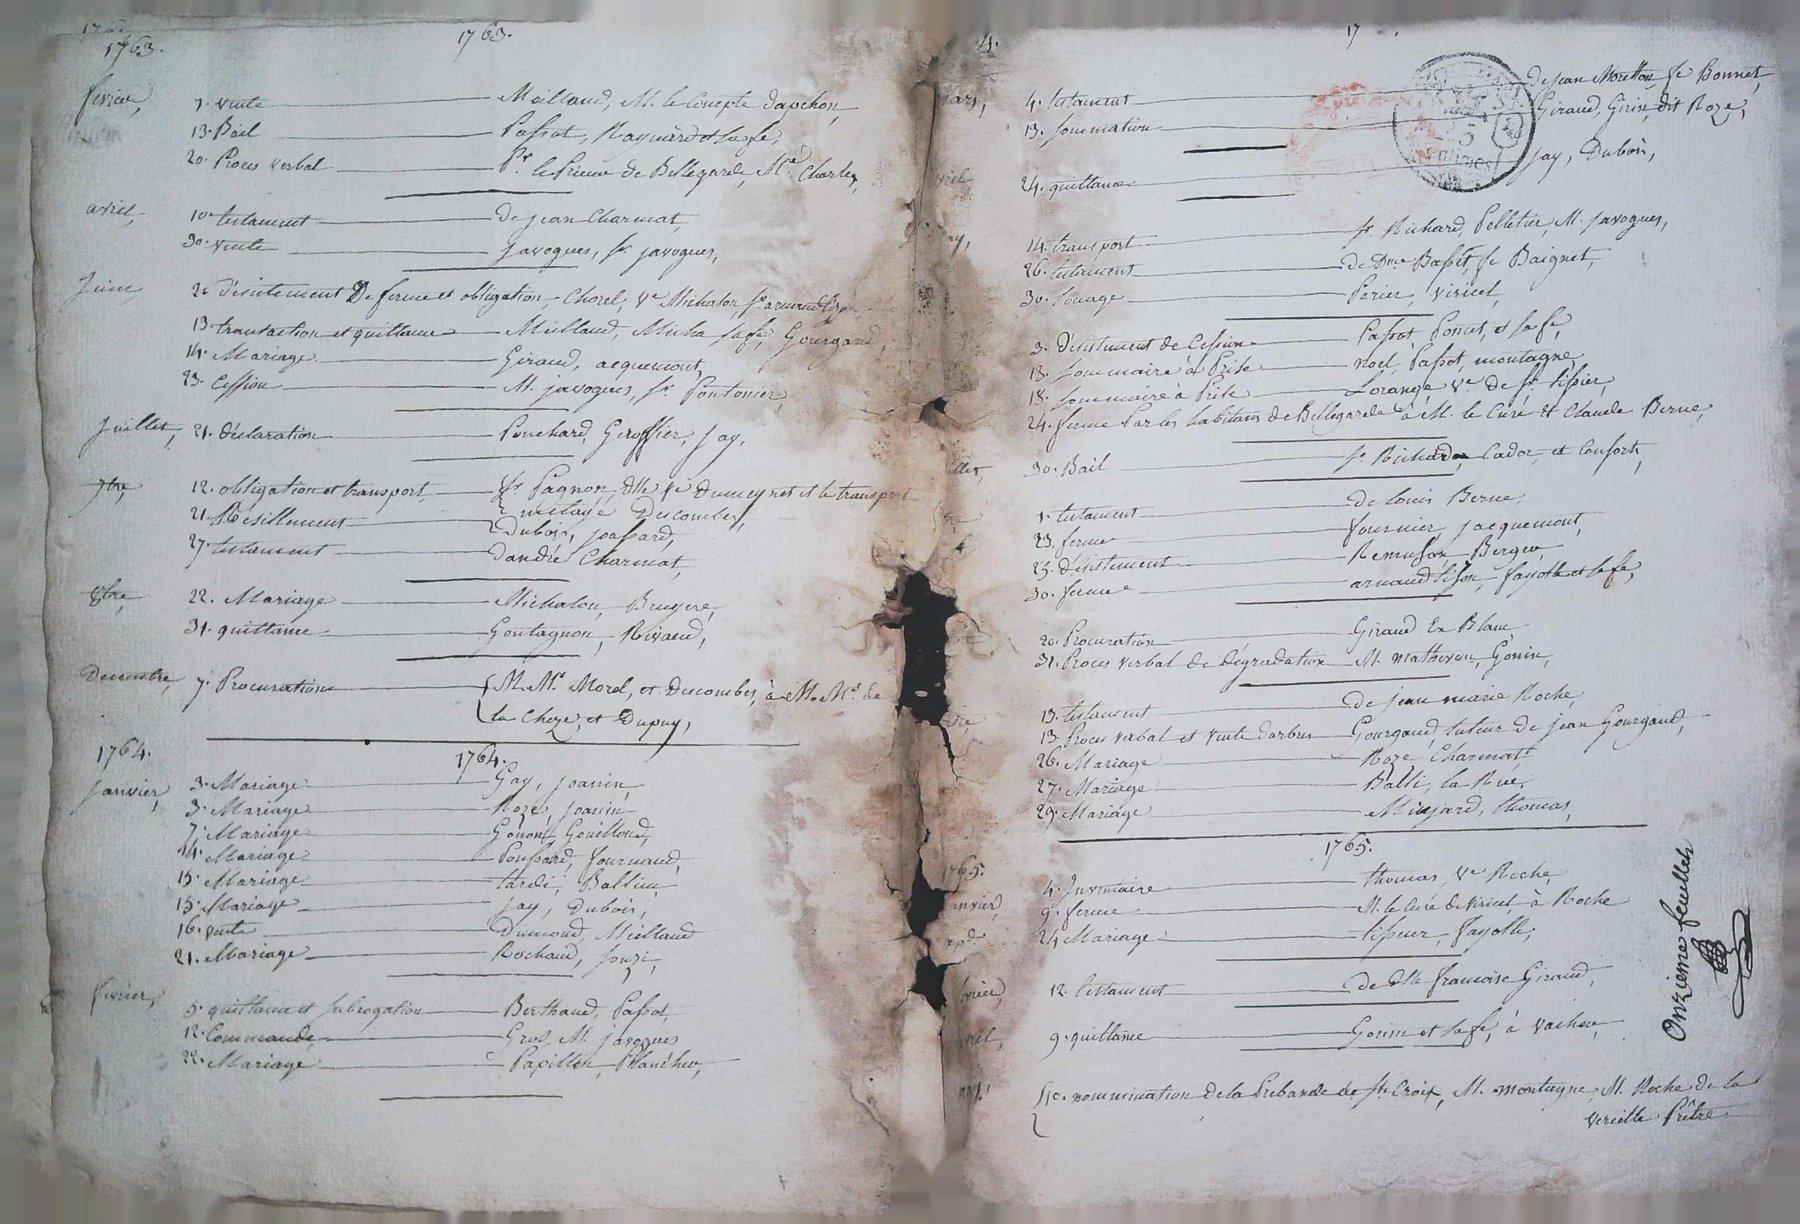 1763.
1763.
février, 7. vente Meilland, M. le Compte dapchon,
13. Bail Passot, Raynard et sa fe,
20. Procès verbal Pr. le Prieur de Bellegarde, Me Charles,
avril, 10. testament de jean Charmat,
30. vente javogues, Sr. javogues,
Juin 2. désistement De ferme et obligation Chorel, Ve Michalon,
13. transaction et quittance Meilland, Micha sa fe, Gourgand,
14. Mariage Giraud, acquemont,
23. Cession M. javogues, Sr. Pontonier,
Juillet, 21. déclaration Pouchard, Giroffier, jay,
7bre, 12. obligation et transport Sr. Pagnon, dlle Ve dumeynet et le transport
métayé Descombes,
21. Résillement Dubois, joassard,
27. testament dandré Charmat,
8bre, 22. Mariage Michalon, Bruyere,
31. quittance Goutagnon, Rivaud,
Decembre, 7. Procuration M. Mrs. Morel, et Descombes, à M. Md. de
la Cheze, et Dupuy,
1764.
1764.
janvier, 3. Mariage Gay, joanin,
3. Mariage Roze, joanin
7. Mariage Gonon, Gouilloud,
14. Mariage Poussard, fournand,
15. Mariage tardi, Ballin,
15. Mariage jay, Dubois,
16. vente Dumond, Meilland
21. Mariage Rochand, jouzi,
fevrier, 5. quittance et subrogation Berthaud, Passot,
12. Commande Groz, M. javogues
22. Mariage Papillon, Plancher,
4.
17
4. testament de jean Moretton, fe Bonnet,
13. sommation Giraud, Girin, dit Roze,
24. quittance jay, Dubois,
14. transport Sr. Richard, Pelletier, M. javogues,
26. testament de Dme Basset, fe Baignet,
30. louage Perier, viricel,
3. désistement de Cession Passot Poncet, et sa fe,
13. sommaire à Prise noel, Passot, montagne,
18. sommaire à Prise Lorange, ve. de fr. tissier,
24. ferme Par les habitans de Bellegarde à M. le Curé et Claude Berne,
30. Bail Sr. Richard, Cador, et Consorts,
1. testament de louis Berne,
23. ferme fournier, jacquemont,
25. désistement Remuson Berger,
30. ferme arnaud tison, fayolle et sa fe,
20. Procuration Giraud Ex Blanc
31. Proces verbal de dégradation M. mathevon, Gonin,
13. testament de jean marie Roche,
13. Proces verbal et vente darbres Gourgaud, tuteur de jean Gourgaud,
26. Mariage Roze, Charmat,
27. Mariage Balli, la Rue,
29. Mariage Minjard, thomas,
1765.
1765.
4. Inventaire thomas, Ve Roche,
9. ferme M. le Curé de viricel, à Roche
24. Mariage tissieur, fayolle,
12. testament de dlle francoise Giraud,
9. quittance Gonin et sa fe, à vacher,
10. nommination de la Prebande de Ste Croix, M. montagne, M. Roche de la
verielle Prêtre
Onzieme feuillet